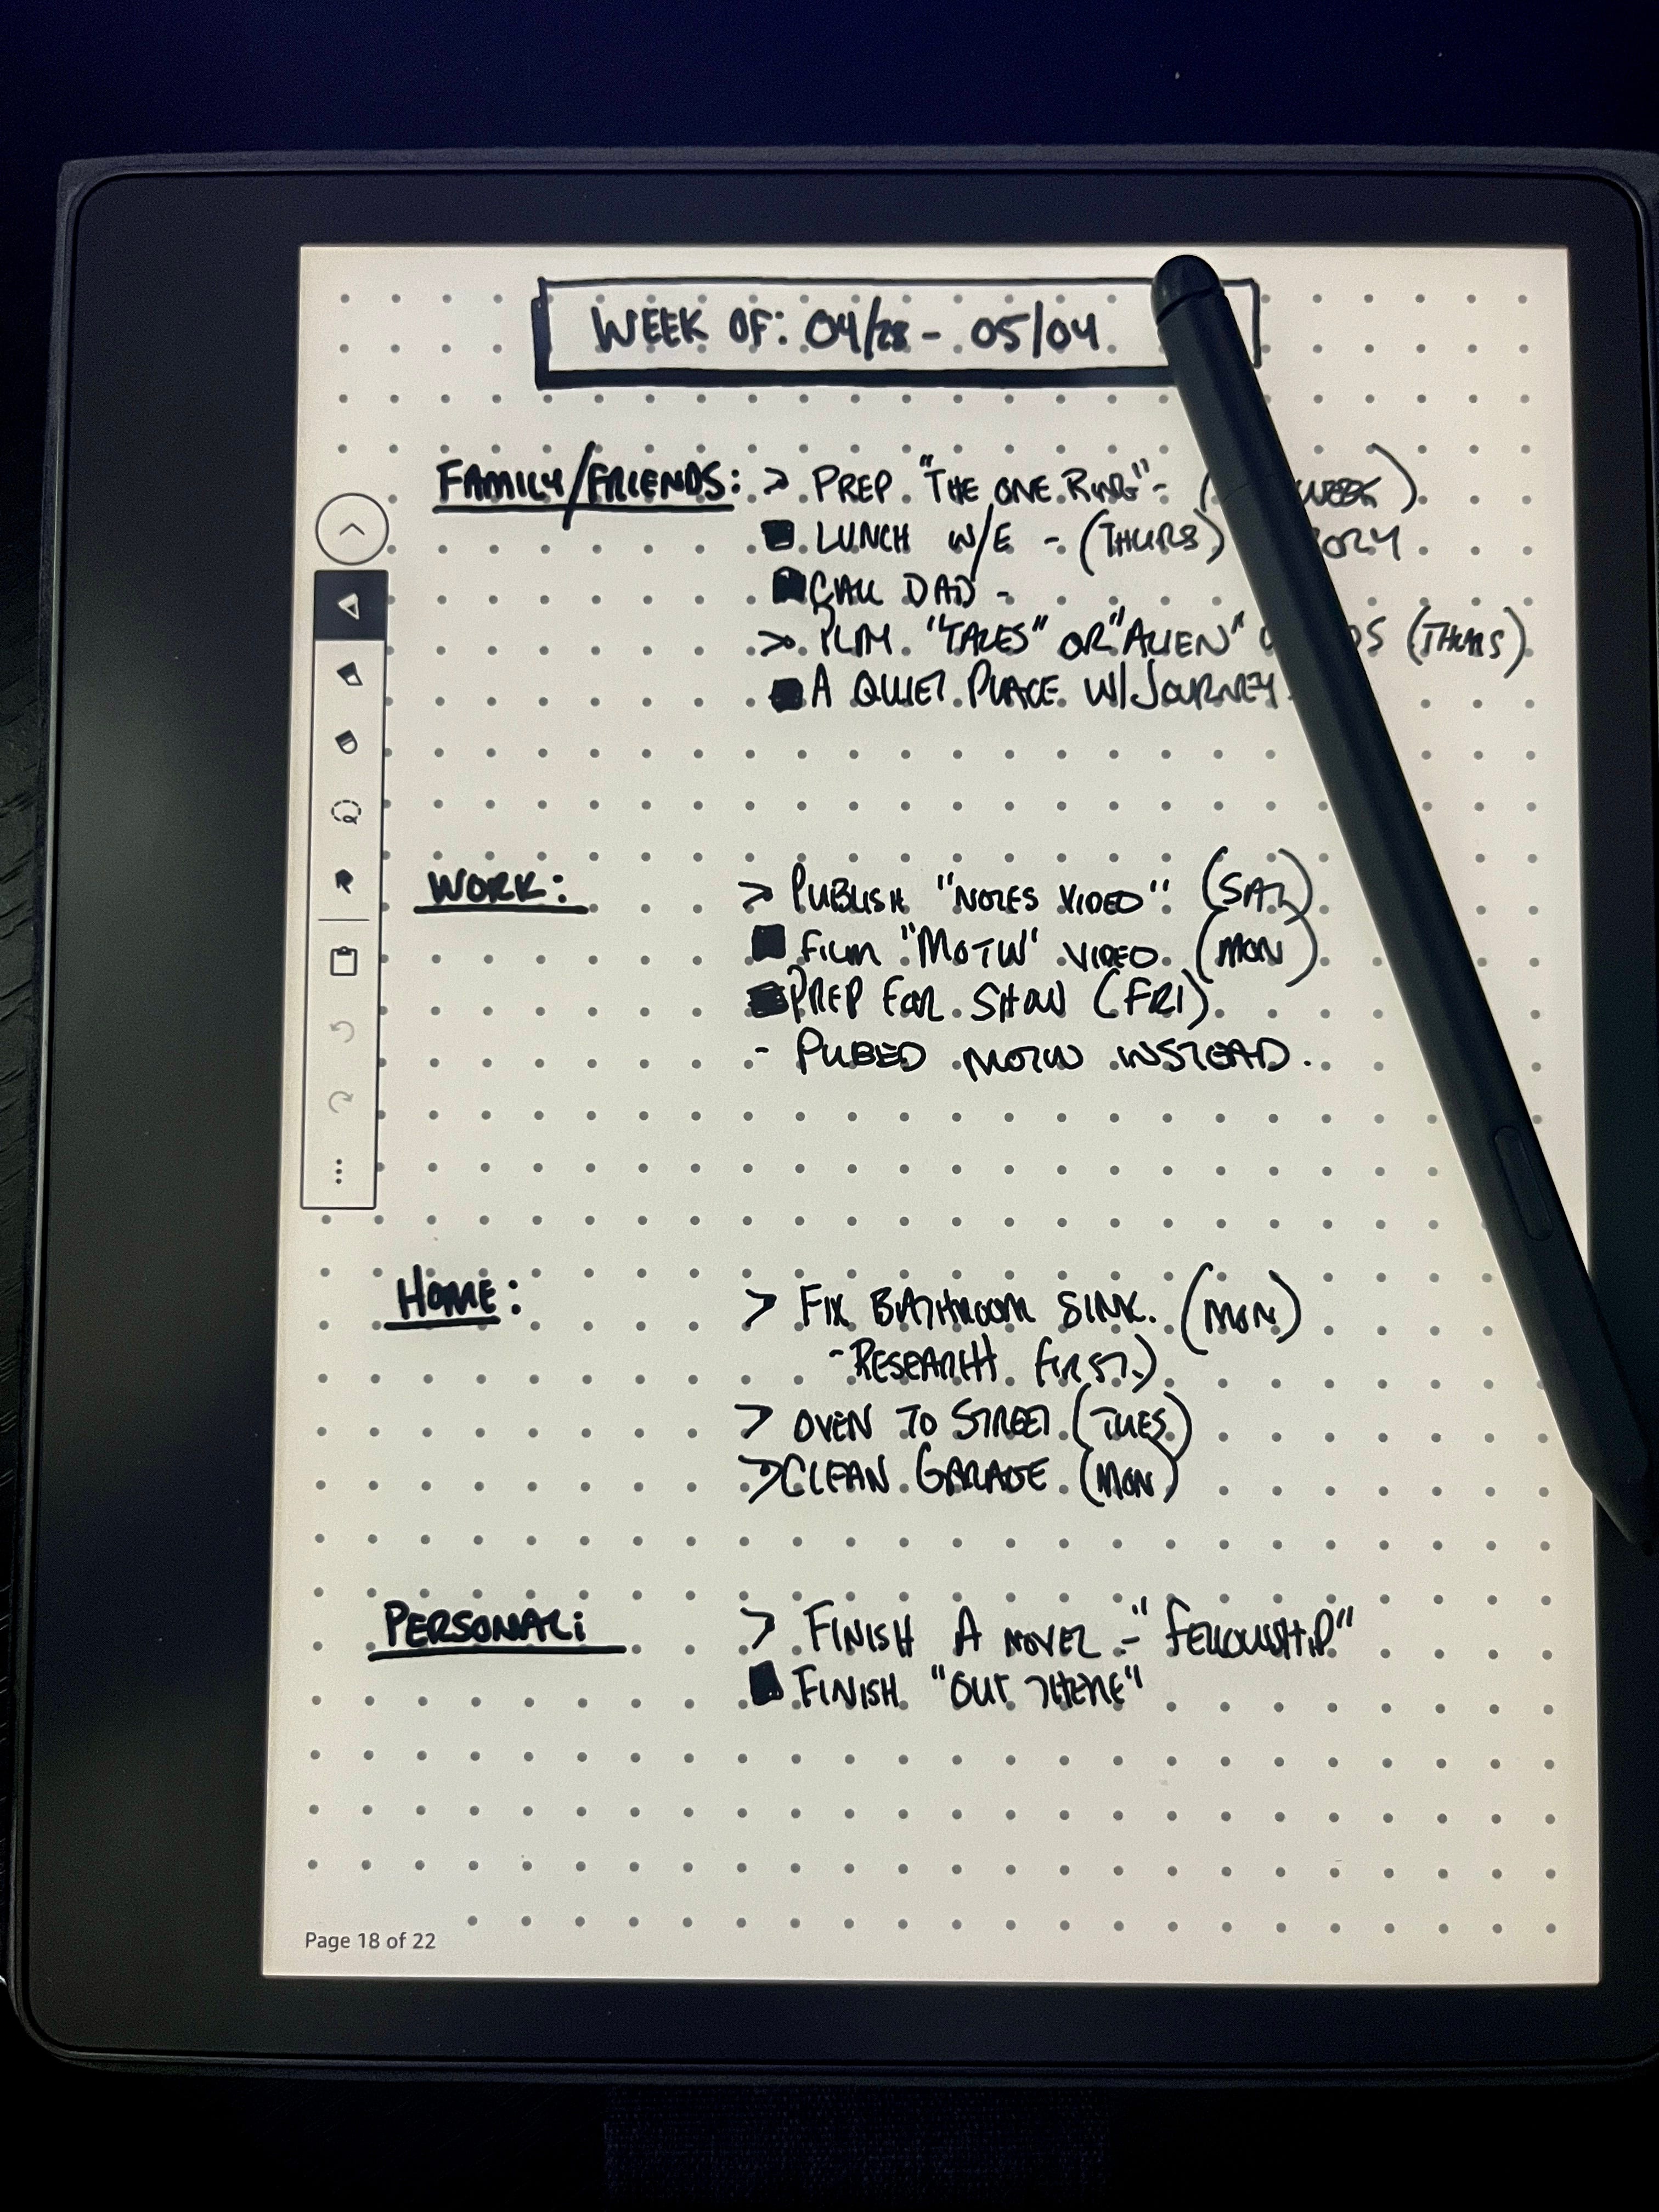 WEEK OF: 04/28 - 05/04
FAMILY/FRIENDS: > PREP "THE ONE RING" - ( WEEK)
■ LUNCH W/E - (THURS)
■ CALL DAD -
> "TALES" OR "ALIEN" (THURS)
■ A QUIET PLACE W/JOURNEY
WORK: > PUBLISH "NOTES VIDEO" (SAT)
■ FILM "MOTW" VIDEO (MON)
■ PREP FOR SHOW (FRI)
- PUBED MOTW INSTEAD.
HOME: > FIX BATHROOM SINK. (MON)
- RESEARCH FIRST)
> OVEN TO STREET (TUES)
> CLEAN GARAGE (MON)
PERSONAL: > FINISH A NOVEL - "FELLOWSHIP"
■ FINISH "OUT THERE"
Page 18 of 22